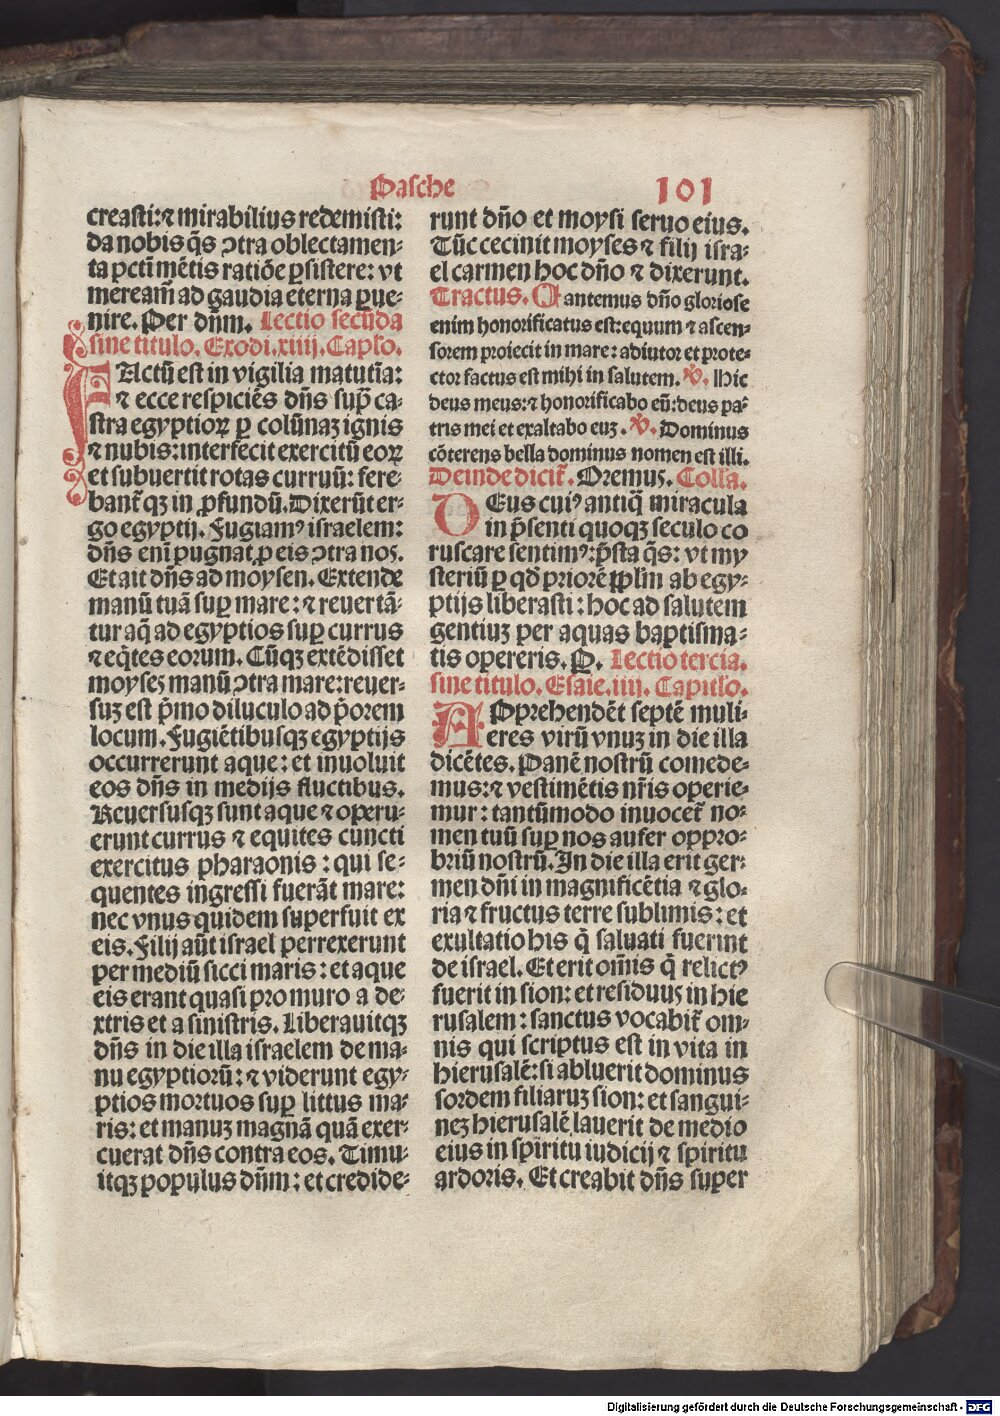 Pasche
101
creasti:⁊ mirabilius redemisti:
da nobis q̄s ꝯtra oblectamen⸗
ta pctī mētis ratiōe ꝑsistere: vt
meream̄ ad gaudia eterna ꝑue⸗
nire. Per dn̄m. Lectio secūda
sine titulo. Exodi.xiiij. Caplo.
FActū est in vigilia matutīa:
⁊ ecce respiciēs dn̄s suꝑ ca⸗
stra egyptioꝝ ꝑ colūnaꝫ ignis
⁊ nubis:interfecit exercitū eoꝝ
et subuertit rotas curruū: fere⸗
bant᷑qꝫ in ꝓfundū.Dixerūt er⸗
go egyptij. Fugiamꝰ israelem:
dn̄s enī pugnat ꝓ eis ꝯtra nos.
Et ait dn̄s ad moysen. Extende
manū tuā suꝑ mare: ⁊ reuertā⸗
tur aq̄ ad egyptios suꝑ currus
⁊ eq̄tes eorum. Cūqꝫ extēdisset
moyses manū ꝯtra mare:reuer⸗
suꝫ est p̄mo diluculo ad p̄orem
locum. Fugiētibusqꝫ egyptijs
occurrerunt aque: et inuoluit
eos dn̄s in medijs fluctibus.
Reuersusqꝫ sunt aque ⁊ operu⸗
erunt currus ⁊ equites cuncti
exercitus pharaonis : qui se⸗
quentes ingressi fuerāt mare:
nec vnus quidem superfuit ex
eis. Filij aūt israel perrexerunt
per mediū sicci maris : et aque
eis erant quasi pro muro a de⸗
xtris et a sinistris. Liberauitqꝫ
dn̄s in die illa israelem de ma⸗
nu egyptiorū: ⁊ viderunt egy⸗
ptios mortuos suꝑ littus ma⸗
ris: et manuꝫ magnā quā exer⸗
cuerat dn̄s contra eos. Timu⸗
itqꝫ populus dn̄m : et credide⸗
runt dn̄o et moysi seruo eius.
Tūc cecinit moyses ⁊ filij isra⸗
el carmen hoc dn̄o ⁊ dixerunt.
Tractus. Cantemus dn̄o gloriose
enim honorificatus est:equum ⁊ ascen⸗
sorem proiecit in mare: adiutor et prote⸗
ctor factus est mihi in salutem. ℣. Hic
deus meus:⁊ honorificabo eū:deus pa⸗
tris mei et exaltabo euꝫ. ℣. Dominus
cōterens bella dominus nomen est illi.
Deinde dicit᷑. Oremus. Colla.
DEus cuiꝰ antiq̄ miracula
in p̄senti quoqꝫ seculo co
ruscare sentimꝰ:p̄sta q̄s: vt my
steriū ꝑ qd̄ priorē pplm̄ ab egy⸗
ptijs liberasti : hoc ad salutem
gentiuꝫ per aquas baptisma⸗
tis opereris. P. Lectio tercia.
sine titulo. Esaie.iiij. Capitlo.
APprehendēt septē muli⸗
eres virū vnuꝫ in die illa
dicētes. Panē nostrū comede⸗
mus:⁊ vestimētis nr̄is operie⸗
mur : tantūmodo inuocet᷑ no⸗
men tuū suꝑ nos aufer oppro⸗
briū nostrū. In die illa erit ger⸗
men dn̄i in magnificētia ⁊ glo⸗
ria ⁊ fructus terre sublimis : et
exultatio his q̄ saluati fuerint
de israel. Et erit om̄is q̄ relictꝰ
fuerit in sion: et residuus in hie
rusalem : sanctus vocabit᷑ om⸗
nis qui scriptus est in vita in
hierusalē: si abluerit dominus
sordem filiaruꝫ sion: et sangui⸗
neꝫ hierusalē lauerit de medio
eius in spiritu iudicij ⁊ spiritu
ardoris. Et creabit dn̄s super
Digitalisierung gefördert durch die Deutsche Forschungsgemeinschaft - DFG